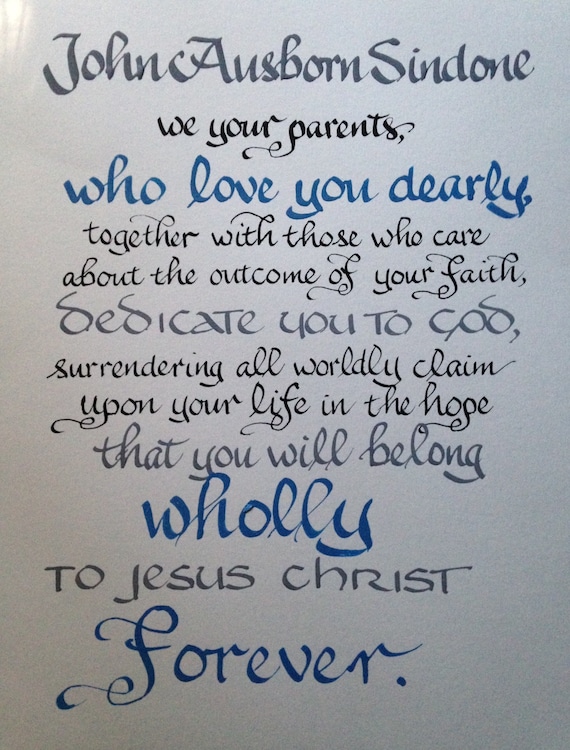 John Ausborn Sindone
we your parents,
who love you dearly,
together with those who care
about the outcome of your faith,
dedicate you to God,
surrendering all worldly claim
upon your life in the hope
that you will belong
wholly
to Jesus Christ
Forever.